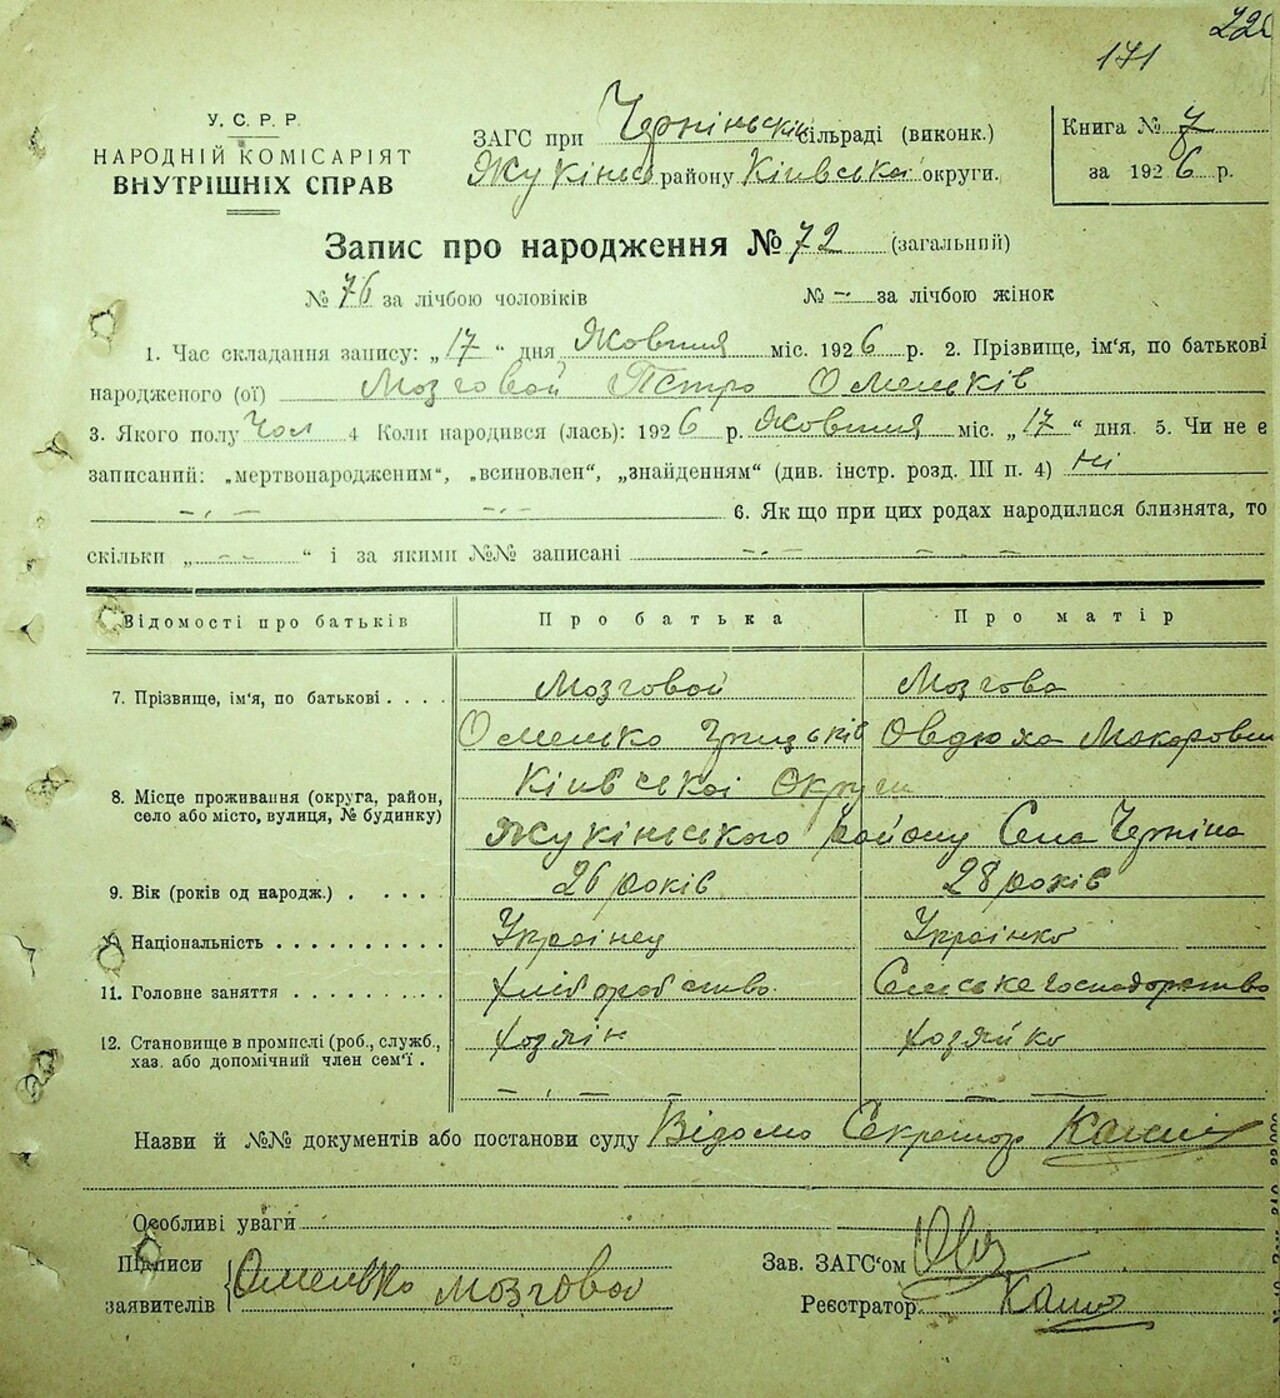 171
У. С. Р. Р.
НАРОДНІЙ КОМІСАРІЯТ
ВНУТРІШНІХ СПРАВ
ЗАГС при Чернінській сільраді (виконк.)
Жукінсь району Київської округи.
Книга № 7
за 1926 р.
Запис про народження № 72 (загальний)
№ 76 за лічбою чоловіків № — за лічбою жінок
1. Час складання запису: „17“ дня Жовтня міс. 1926 р. 2. Прізвище, ім‘я, по батькові
народженого (ої) Мозговой Петро Омельків
3. Якого полу Чол 4 Коли народився (лась): 1926 р. Жовтня міс. „17“ дня. 5. Чи не є
записаний: „мертвонародженим“, „всиновлен“, „знайденням“ (див. інстр. розд. III п. 4) Ні
6. Як що при цих родах народилися близнята, то
скільки „ — — “ і за якими №№ записані
Відомості про батьків Про батька Про матір
7. Прізвище, ім‘я, по батькові . . . . Мозговой Мозгова
Омелько Грицьків Овдюха Макаровн
8. Місце проживання (округа, район, село або місто, вулиця, № будинку) Київської Округи
Жукінського району Села Черніна
9. Вік (років од народж.) . . . . 26 років 28 років
Національність . . . . . . . . . . Українец Українка
11. Головне заняття . . . . . . . . . Хліборобство. Сельське господарство
12. Становище в промислі (роб., служб., Хозяін Хозяйка
хаз. або допомічний член сем‘ї .
Назви й №№ документів або постанови суду Відомо Секретар
Особливі уваги
Підписи
заявителів Омелько Мозговой
Зав. ЗАГС‘ом
Реєстратор